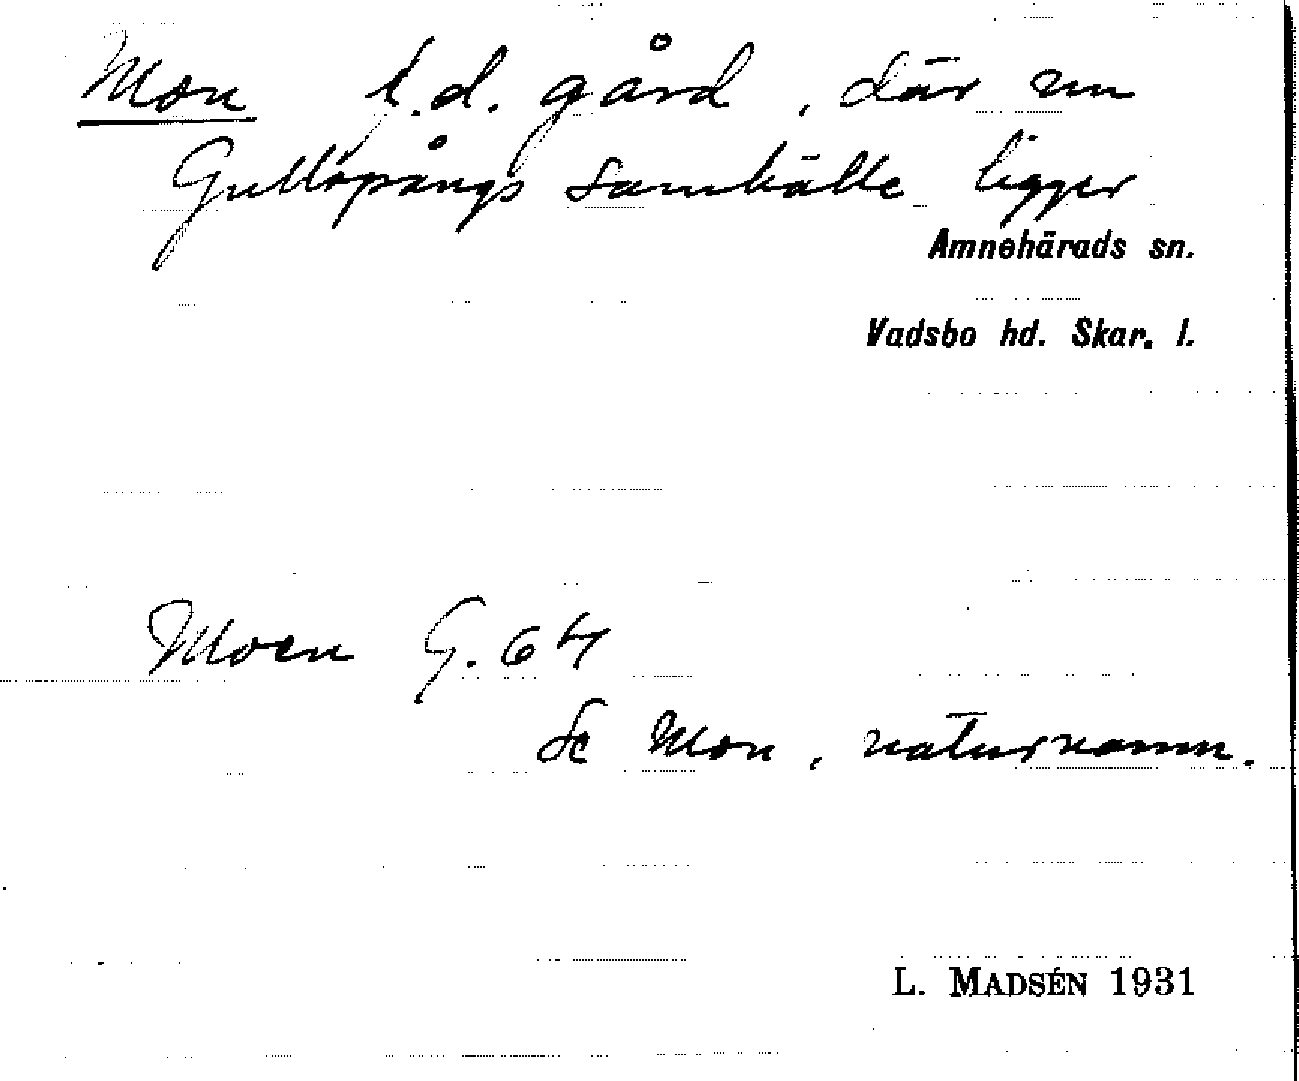 Mon f.d. gård, där nu
Gullspångs samhälle ligger
Amnehärads sn.
Vadsbo hd. Skar. l.
Moen G. 64
Se Mon, naturnamn.
L. MADSÉN 1931